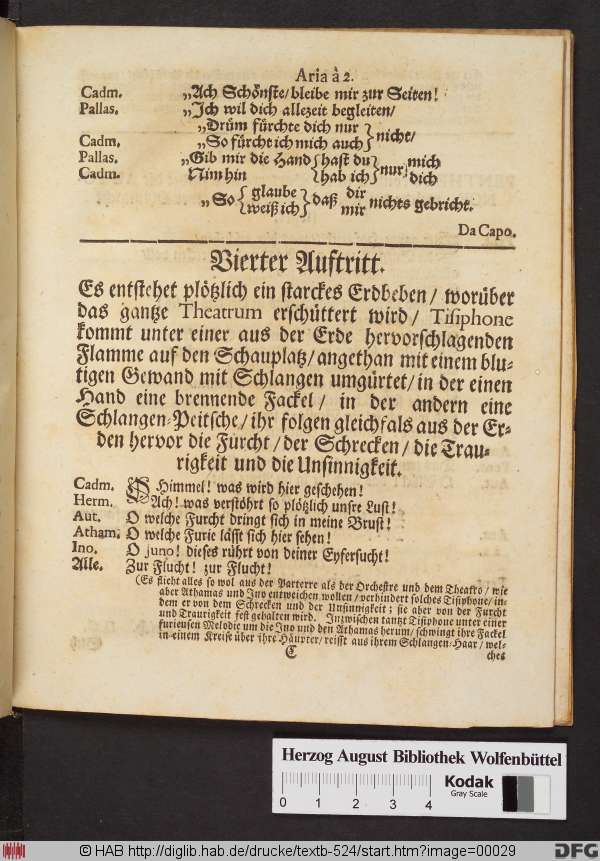 Aria à 2.
Cadm. „Ach Schönste/bleibe mir zur Seiten!
Pallas. „Ich wil dich allezeit begleiten/
„Drüm fürchte dich nur } nicht/
Cadm. „So fürcht ich mich auch
Pallas. „Gib mir die Hand { hast du } nur { mich
Cadm. Nim hin { hab ich } dich
„So { glaube } daß { dir } nichts gebricht.
weiß ich mir
Da Capo.
Vierter Auftritt.
Es entstehet plötzlich ein starckes Erdbeben / worüber
das gantze Theatrum erschüttert wird / Tisiphone
kommt unter einer aus der Erde hervorschlagenden
Flamme auf den Schauplatz/angethan mit einem blu-
tigen Gewand mit Schlangen umgürtet/in der einen
Hand eine brennende Fackel / in der andern eine
Schlangen-Peitsche/ihr folgen gleichfals aus der Er-
den hervor die Furcht/der Schrecken/die Trau-
rigkeit und die Unsinnigkeit.
Cadm. O Himmel! was wird hier geschehen!
Herm. Ach! was verstöhrt so plötzlich unsre Lust!
Aut. O welche Furcht dringt sich in meine Brust!
Atham. O welche Furie lässt sich hier sehen!
Ino. O juno! dieses rührt von deiner Eyfersucht!
Alle. Zur Flucht! zur Flucht!
(Es flieht alles so wol aus der Parterre als der Orchestre und dem Theatro/wie
aber Athamas und Ino entweichen wollen/verhindert solches Tisiphone/in-
dem er von dem Schrecken und der Unsinnigkeit; sie aber von der Furcht
und Traurigkeit fest gehalten wird. Inzwischen tantzt Tisiphone unter einer
furieusen Melodie um die Ino und den Athamas herum/schwingt ihre Fackel
in einem Kreise über ihre Häupter/reisst aus ihrem Schlangen-Haar/wel-
C ches
Herzog August Bibliothek Wolfenbüttel
0 1 2 3 4
Kodak
Gray Scale
© HAB http://diglib.hab.de/drucke/textb-524/start.htm?image=00029
DFG